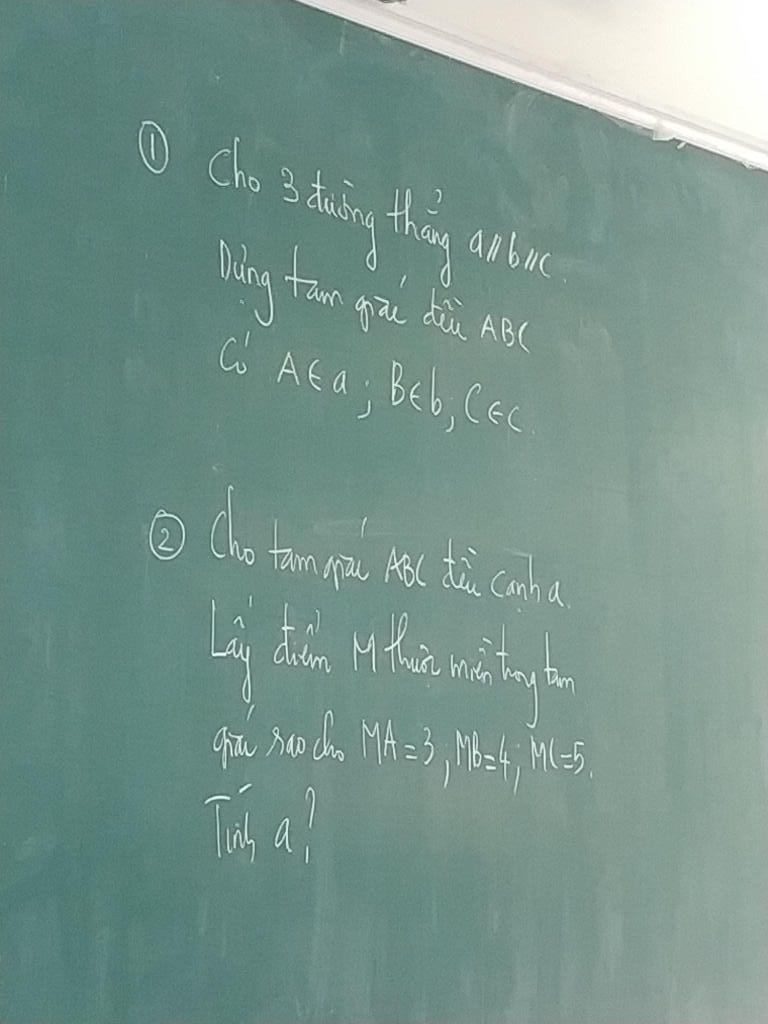 ① Cho 3 đường thẳng a//b//c.
Dựng tam giác đều ABC
Có A∈a; B∈b; C∈c.
② Cho tam giác ABC đều cạnh a.
Lấy điểm M thuộc miền trong tam
giác sao cho MA=3; MB=4; MC=5.
Tính a?